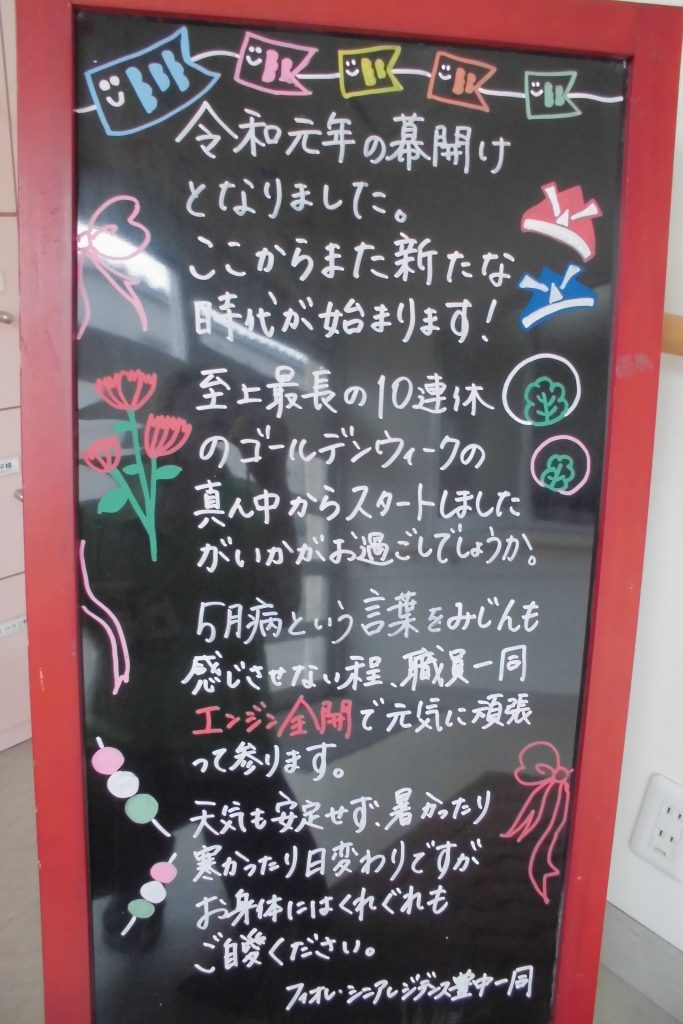 令和元年の幕開け
となりました。
ここからまた新たな
時代が始まります!
至上最長の10連休
のゴールデンウィークの
真ん中からスタートしました
がいかがお過ごしでしょうか。
5月病という言葉をみじんも
感じさせない程、職員一同
エンジン全開で元気に頑張
って参ります。
天気も安定せず、暑かったり
寒かったり日変わりですが
お身体にはくれぐれも
ご自愛ください。
フィオレ・シニアレジデンス豊中一同